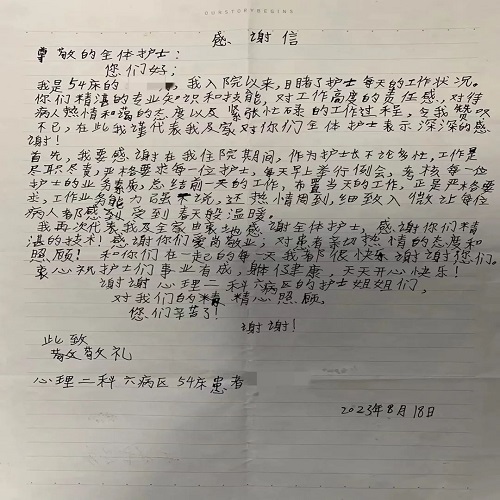 OURSTORYBEGINS
感谢信
尊敬的全体护士:
您们好;
我是54床的 ,我入院以来,目睹了护士每天的工作状况。
你们精湛的专业知识和技能,对工作高度的责任感,对待
病人热情和蔼的态度以及紧张忙碌的工作过程,令我赞叹
不已,在此我谨代表我及家对你们全体护士表示深深的感
谢!
首先,我要感谢在我住院期间,作为护士长不论多忙,工作是
尽职尽责,严格要求每一位护士,每天早上举行例会,考核每一位
护士的业务素质,总结前一天的工作,布置当天的工作,正是严格要
求,工作业务能力强 还热情周到,细致入微让每位
病人都感到受到春天般温暖。
我再次代表我及全家由衷地感谢全体护士,感谢你们精
湛的技术!感谢你们爱岗敬业;对患者亲切热情的态度和
照顾!和你们在一起的每一天我都很快乐谢谢您们。
衷心祝护士们事业有成,身体健康,天天开心快乐!
谢谢心理二科六病区的护士姐姐们,
对我们的精心照顾。
您们辛苦了!
谢谢!
此致
敬礼
心理二科六病区54床患者
2023年8月18日